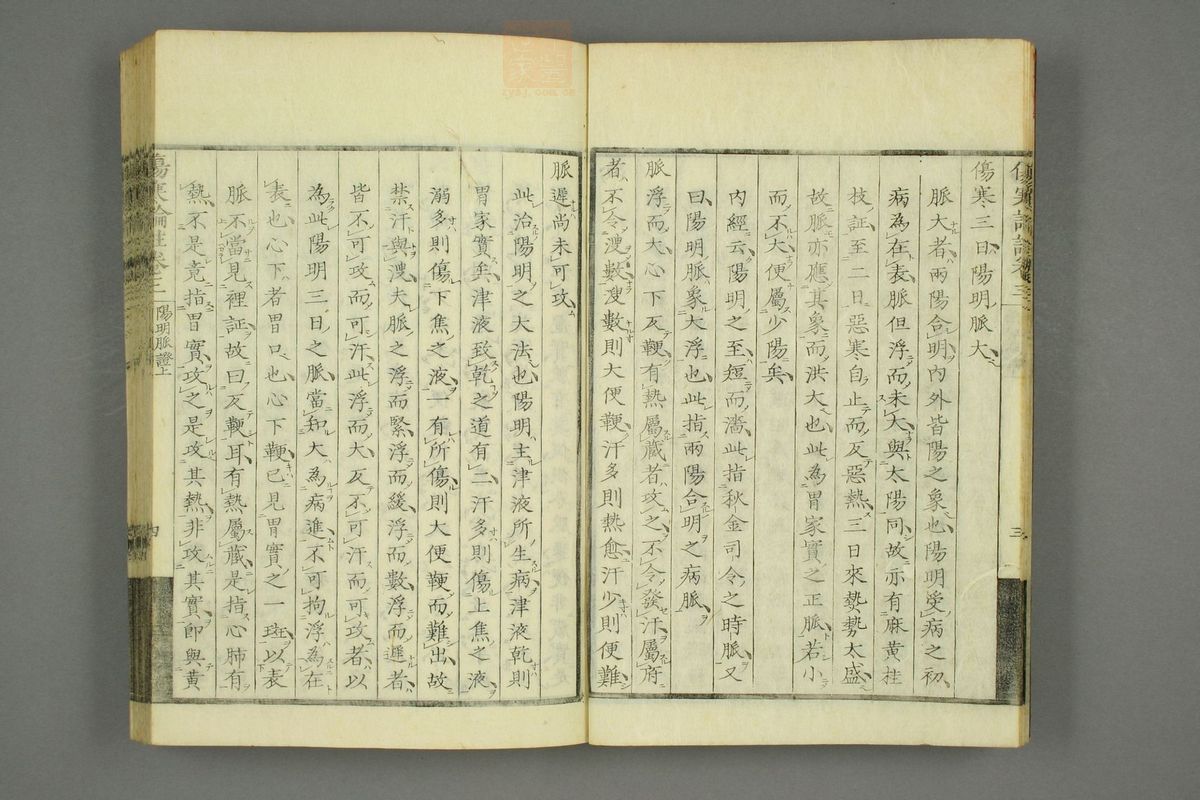 傷寒三日陽明脈大
脈大者兩陽合明內外皆陽之象也陽明受病之初
病為在表脈但浮而未大與太陽同故亦有麻黃桂
枝証至二日惡寒自止而反惡熱三日來勢太盛
故脈亦應其象而洪大也此為胃家實之正脈若小
而不大便屬少陽矣
內經云陽明之至短而濇此指秋金司令之時脈又
曰陽明脈象大浮也此指兩陽合明之病脈
脈浮而大心下反鞕有熱屬藏者攻之不令發汗屬府
者不令溲數溲數則大便鞕汗多則熱愈汗少則便難
三
脈遲尚未可攻
此治陽明之大法也陽明主津液所生病津液乾則
胃家實矣津液致乾之道有二汗多則傷上焦之液
溺多則傷下焦之液一有所傷則大便鞕而難出故
禁汗與溲夫脈之浮而緊浮而緩浮而數浮而遲者
皆不可攻而可汗此浮而大反不可汗而可攻者以
為此陽明三日之脈當知大為病進不可拘浮為在
表也心下者胃口也心下鞕已見胃實之一斑以表
脈不當見裡証故曰反鞕耳有熱屬藏是指心肺有
熱不是竟指胃實攻之是攻其熱非攻其實即與黃
陽明脈證上
四
zysj.com.cn